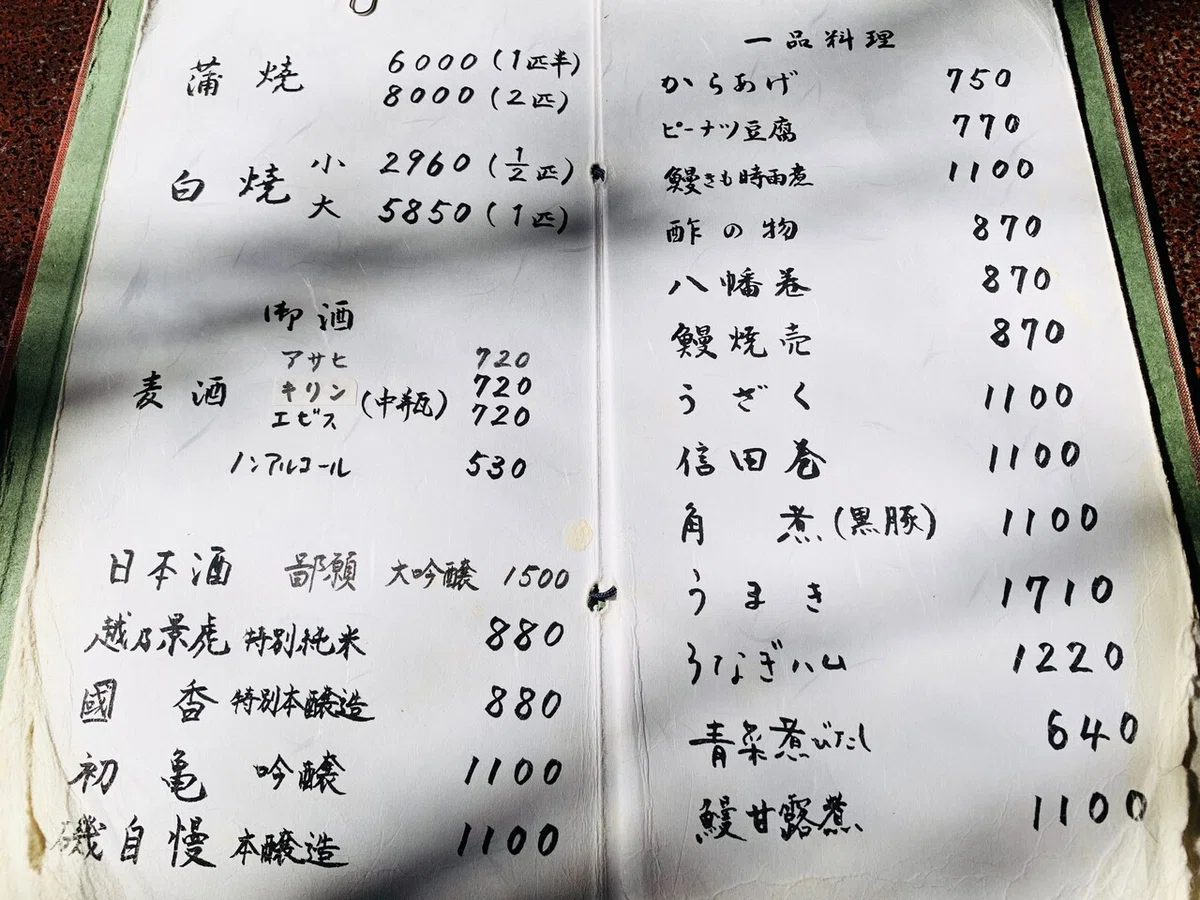 蒲焼 6000(1匹半)
8000(2匹)
白焼 小 2960(1/2匹)
大 5850(1匹)
御酒
麦酒 アサヒ 720
キリン (中瓶) 720
エビス 720
ノンアルコール 530
日本酒 鄙願 大吟醸 1500
越乃景虎 特別純米 880
國香 特別本醸造 880
初亀 吟醸 1100
磯自慢 本醸造 1100
一品料理
からあげ 750
ピーナツ豆腐 770
鰻きも時雨煮 1100
酢の物 870
八幡巻 870
鰻焼売 870
うざく 1100
信田巻 1100
角煮(黒豚) 1100
うまき 1710
うなぎハム 1220
青菜煮びたし 640
鰻甘露煮 1100